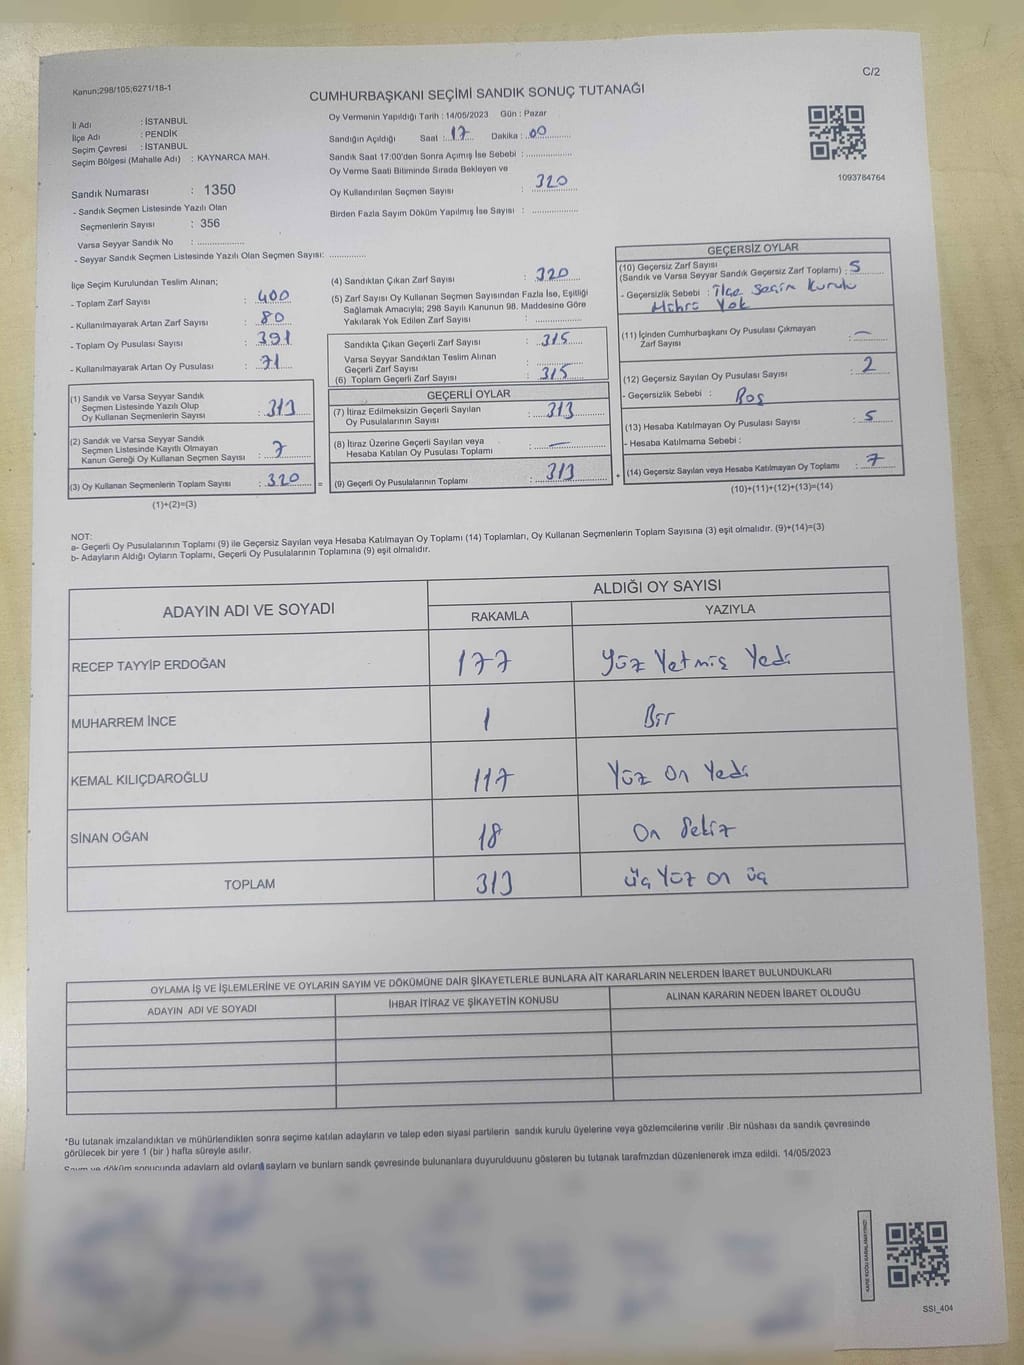 Kanun;298/105;6271/18-1
C/2
CUMHURBAŞKANI SEÇİMİ SANDIK SONUÇ TUTANAĞI
İl Adı : İSTANBUL
İlçe Adı : PENDİK
Seçim Çevresi : İSTANBUL
Seçim Bölgesi (Mahalle Adı) : KAYNARCA MAH.
Oy Vermenin Yapıldığı Tarih : 14/05/2023 Gün : Pazar
Sandığın Açıldığı Saat : 17 Dakika : 00
Sandık Saat 17:00'den Sonra Açımış İse Sebebi :
Oy Verme Saati Bitiminde Sırada Bekleyen ve
Oy Kullandırılan Seçmen Sayısı : 320
Birden Fazla Sayım Döküm Yapılmış İse Sayısı :
1093784764
Sandık Numarası : 1350
- Sandık Seçmen Listesinde Yazılı Olan
Seçmenlerin Sayısı : 356
Varsa Seyyar Sandık No :
- Seyyar Sandık Seçmen Listesinde Yazılı Olan Seçmen Sayısı:
İlçe Seçim Kurulundan Teslim Alınan;
- Toplam Zarf Sayısı : 400
- Kullanılmayarak Artan Zarf Sayısı : 80
- Toplam Oy Pusulası Sayısı : 391
- Kullanılmayarak Artan Oy Pusulası : 71
(1) Sandık ve Varsa Seyyar Sandık
Seçmen Listesinde Yazılı Olup
Oy Kullanan Seçmenlerin Sayısı : 313
(2) Sandık ve Varsa Seyyar Sandık
Seçmen Listesinde Kayıtlı Olmayan
Kanun Gereği Oy Kullanan Seçmen Sayısı : 7
(3) Oy Kullanan Seçmenlerin Toplam Sayısı : 320 =
(1)+(2)=(3)
(4) Sandıktan Çıkan Zarf Sayısı : 320
(5) Zarf Sayısı Oy Kullanan Seçmen Sayısından Fazla İse, Eşitliği
Sağlamak Amacıyla; 298 Sayılı Kanunun 98. Maddesine Göre
Yakılarak Yok Edilen Zarf Sayısı :
Sandıkta Çıkan Geçerli Zarf Sayısı : 315
Varsa Seyyar Sandıktan Teslim Alınan
Geçerli Zarf Sayısı :
(6) Toplam Geçerli Zarf Sayısı : 315
GEÇERLİ OYLAR
(7) İtiraz Edilmeksizin Geçerli Sayılan
Oy Pusulalarının Sayısı : 313
(8) İtiraz Üzerine Geçerli Sayılan veya
Hesaba Katılan Oy Pusulası Toplamı : —
(9) Geçerli Oy Pusulalarının Toplamı : 313 +
GEÇERSİZ OYLAR
(10) Geçersiz Zarf Sayısı
(Sandık ve Varsa Seyyar Sandık Geçersiz Zarf Toplamı) : 5
- Geçersizlik Sebebi : İlçe Seçim Kurulu
Mührü Yok
(11) İçinden Cumhurbaşkanı Oy Pusulası Çıkmayan
Zarf Sayısı : —
(12) Geçersiz Sayılan Oy Pusulası Sayısı : 2
- Geçersizlik Sebebi : Boş
(13) Hesaba Katılmayan Oy Pusulası Sayısı : 5
- Hesaba Katılmama Sebebi :
(14) Geçersiz Sayılan veya Hesaba Katılmayan Oy Toplamı : 7
(10)+(11)+(12)+(13)=(14)
NOT:
a- Geçerli Oy Pusulalarının Toplamı (9) ile Geçersiz Sayılan veya Hesaba Katılmayan Oy Toplamı (14) Toplamları, Oy Kullanan Seçmenlerin Toplam Sayısına (3) eşit olmalıdır. (9)+(14)=(3)
b- Adayların Aldığı Oyların Toplamı, Geçerli Oy Pusulalarının Toplamına (9) eşit olmalıdır.
ADAYIN ADI VE SOYADI
ALDIĞI OY SAYISI
RAKAMLA YAZIYLA
RECEP TAYYİP ERDOĞAN 177 Yüz Yetmiş Yedi
MUHARREM İNCE 1 Bir
KEMAL KILIÇDAROĞLU 117 Yüz On Yedi
SİNAN OĞAN 18 On Sekiz
TOPLAM 313 üç Yüz on üç
OYLAMA İŞ VE İŞLEMLERİNE VE OYLARIN SAYIM VE DÖKÜMÜNE DAİR ŞİKAYETLERLE BUNLARA AİT KARARLARIN NELERDEN İBARET BULUNDUKLARI
ADAYIN ADI VE SOYADI İHBAR İTİRAZ VE ŞİKAYETİN KONUSU ALINAN KARARIN NEDEN İBARET OLDUĞU
*Bu tutanak imzalandıktan ve mühürlendikten sonra seçime katılan adayların ve talep eden siyasi partilerin sandık kurulu üyelerine veya gözlemcilerine verilir .Bir nüshası da sandık çevresinde
görülecek bir yere 1 (bir ) hafta süreyle asılır.
Sayım ve döküm sonucunda adayların ald oyların sayların ve bunların sandk çevresinde bulunanlara duyurulduunu gösteren bu tutanak tarafmzdan düzenlenerek imza edildi. 14/05/2023
SSI_404